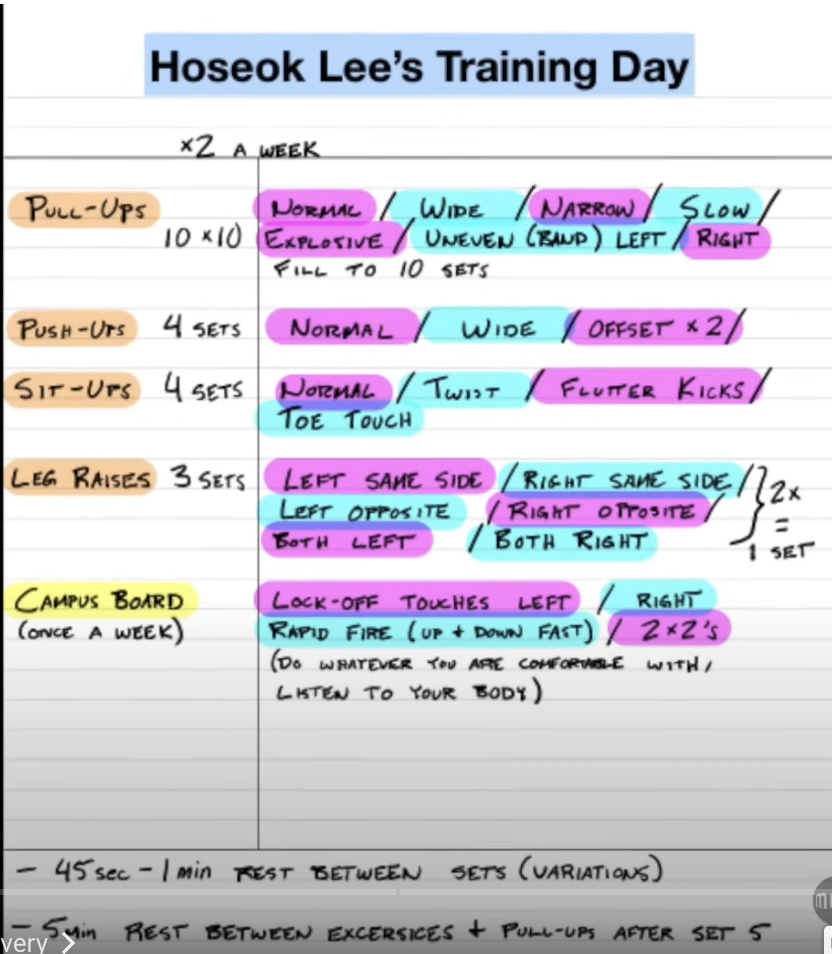 Hoseok Lee's Training Day
×2 A WEEK
PULL-UPS NORMAL / WIDE / NARROW / SLOW /
10 ×10 EXPLOSIVE / UNEVEN (BAND) LEFT / RIGHT
FILL TO 10 SETS
PUSH-UPS 4 SETS NORMAL / WIDE / OFFSET × 2 /
SIT-UPS 4 SETS NORMAL / TWIST / FLUTTER KICKS /
TOE TOUCH
LEG RAISES 3 SETS LEFT SAME SIDE / RIGHT SAME SIDE / } 2x
LEFT OPPOSITE / RIGHT OPPOSITE / =
BOTH LEFT / BOTH RIGHT 1 SET
CAMPUS BOARD LOCK-OFF TOUCHES LEFT / RIGHT
(ONCE A WEEK) RAPID FIRE (UP + DOWN FAST) / 2×2's
(DO WHATEVER YOU ARE COMFORTABLE WITH,
LISTEN TO YOUR BODY)
- 45sec - 1 min REST BETWEEN SETS (VARIATIONS)
- 5min REST BETWEEN EXCERSICES + PULL-UPS AFTER SET 5
very >